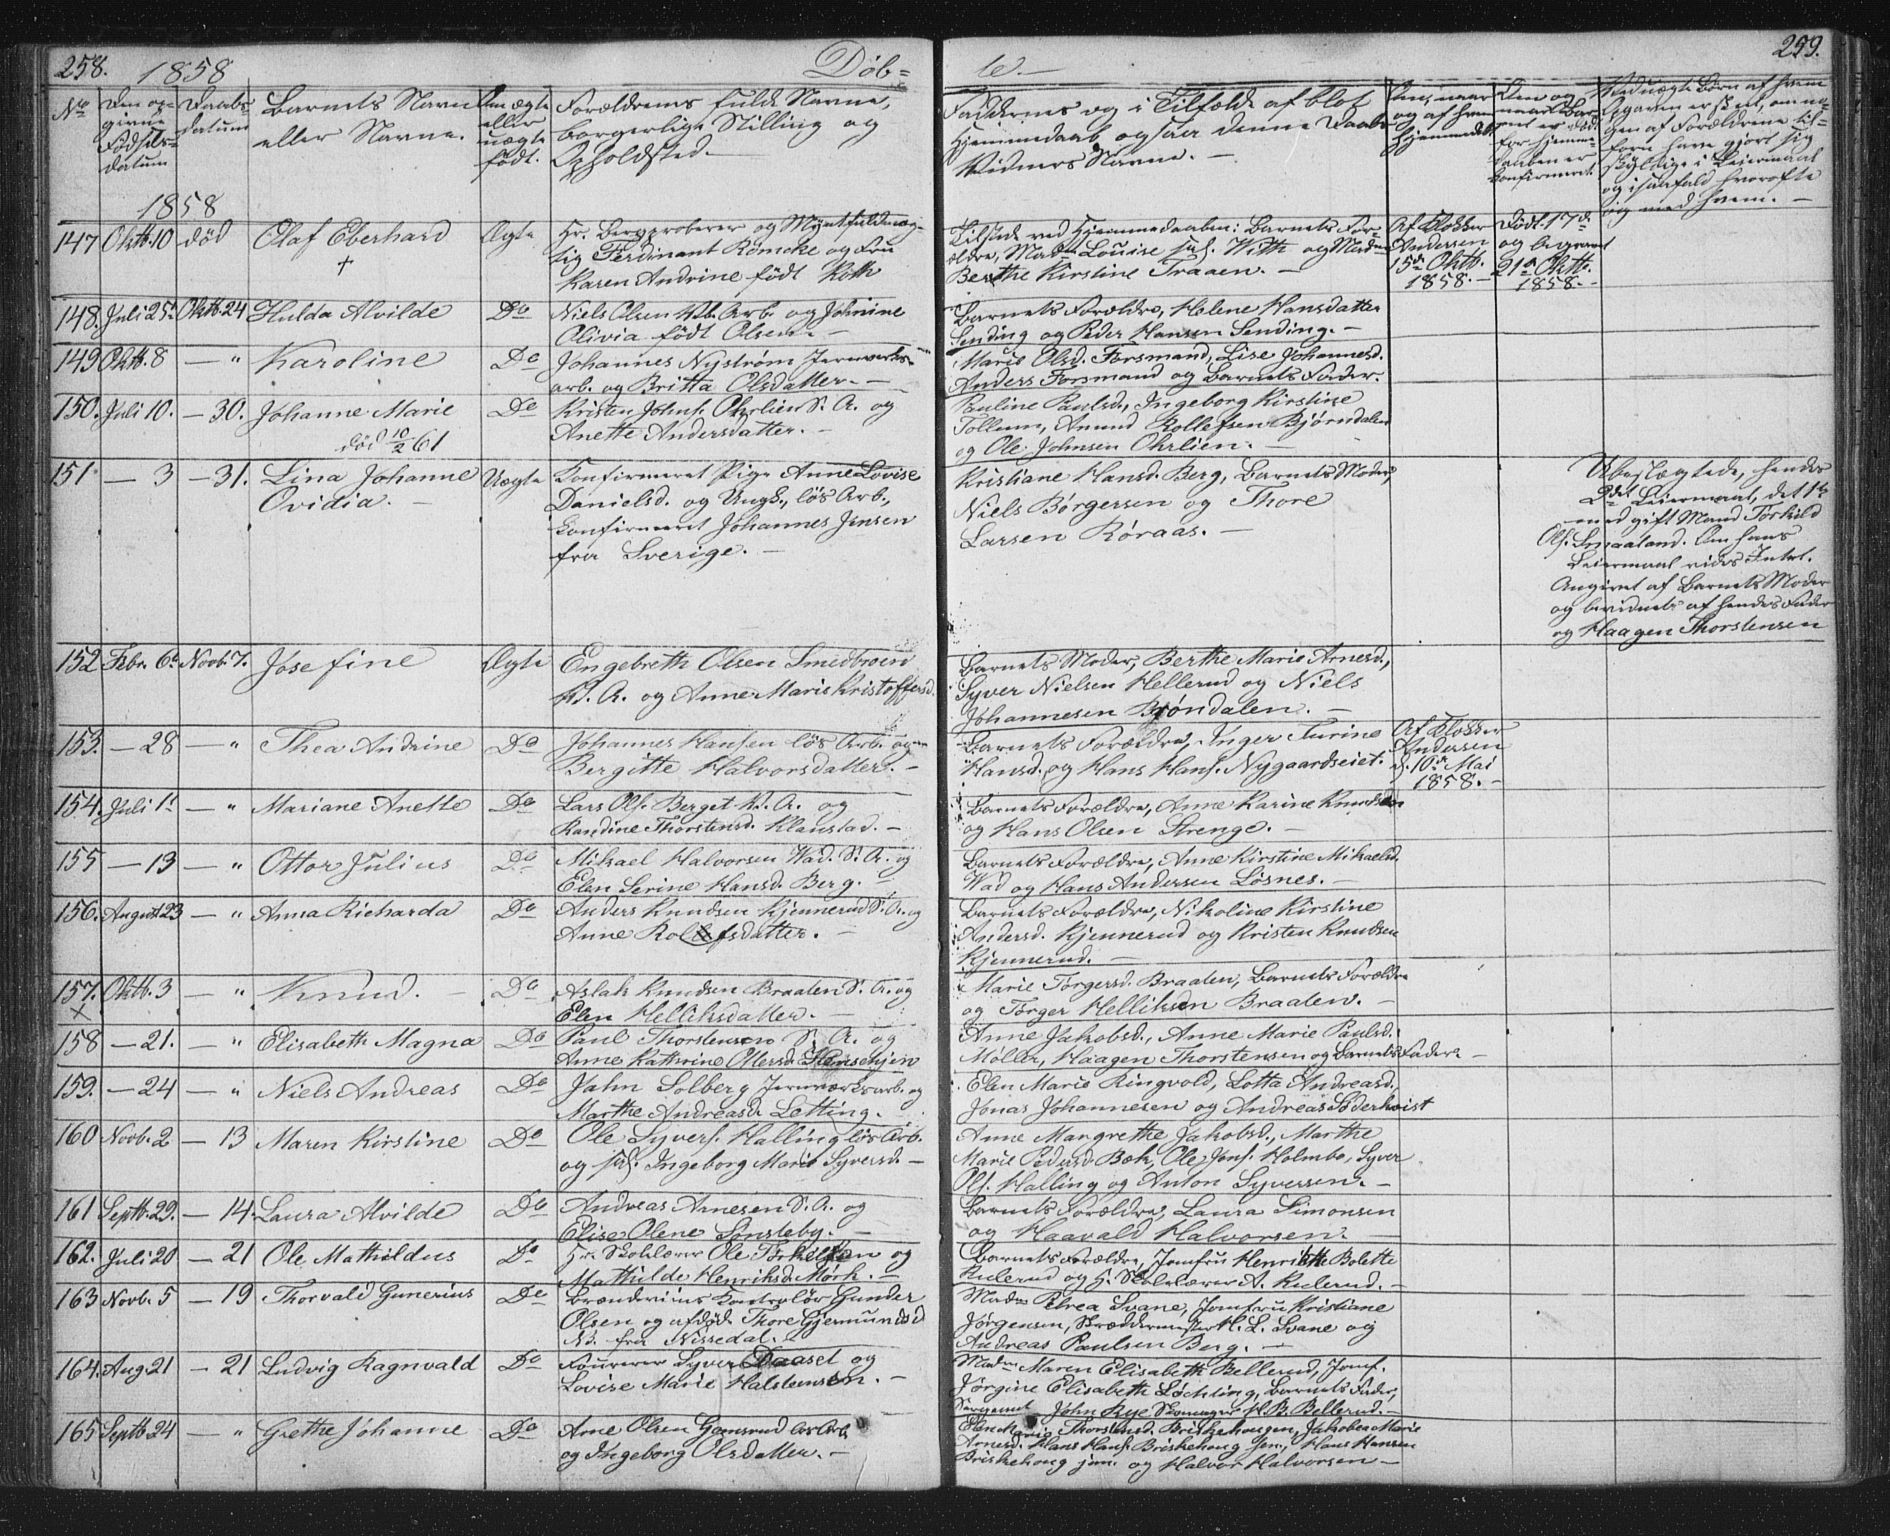 258. 1858 Døb=
No Den op- Daabs- Barnets Navn Om ægte Forældrenes fulde Navne,
givne datum eller Navne. eller borgerlige Stilling og
Fødsels- uægte Opholdsted.
datum født.
1858
147 Oktb. 10 død Olaf Eberhard Ægte Hr. Bergproberer og Myntfuldmæg-
† tig Ferdinant Rømcke og Fru
Karen Andrine født Roth
148. Juli 25. Oktb. 24 Hulda Alvilde Do Niels Olsen Arb. og Johnine
Olivia født Olsen. —
149 Oktb. 8 — " Karoline Do Johannes Nystrøm Jernverks-
arb. og Britta Olsdatter. —
150. Juli 10. — 30. Johanne Marie Do Kristen Johns. Ohrlien S. A. og
død 10/2 61 Anette Andersdatter. —
151 — 3 — 31. Lina Johanne Uægte Konfirmeret Pige Anne Lovise
Ovidia. — Danielsd. og Ungk., løs Arb.,
konfirmeret Johannes Jensen
fra Sverige. —
152 Febr. 6. Novb. 7. Josefine Ægte Engebreth Olsen Smedbroen
K. A. og Anne Marie Kristoffersd.
153. — 28 — " Thea Andrine Do Johannes Hansen løs Arb. og
Bergitte Halvorsdatter. —
154. Juli 1. — " Mariane Anette Do Lars Ols. Berget K. A. og
Randine Thorstensd. Klanstad. —
155 — 13 — " Ottor Julius Do Mikael Halvorsen Wad. S. A. og
Elen Serine Hansd. Berg. —
156. August 23 — " Anna Richarda Do Anders Knudsen Kjennerud S. A. og
Anne Rollefsdatter. —
157. Oktb. 3 — " Knud. — Do Aslak Knudsen Braaten S. A. og
× Elen Helliksdatter. —
158 — 21. — " Elisabeth Magna Do Paul Thorstensen S. A. og
Anne Kathrine Olersd.
159. — 24 — " Niels Andreas Do John Solberg Jernværksarb. og
Marthe Andreasd. Letting. —
160 Novb. 2 — 13 Maren Kirstine Do Ole Syvers. Halling løs Arb.
og Ingeborg Marie Syversd. —
161 Septb. 29. — 14. Laura Alvilde Do Andreas Arnesen S. A. og
Elise Olene Sønsteby. —
162. Juli 20 — 21 Ole Mathildus Do Hr. Skolelærer Ole Torkelsen og
Mathilde Henriksd. Mørk. —
163 Novb. 5 — 19 Thorvald Gunerius Do Brænderiets Kontrolør Gunder
Olsen og afdøde Thore Gjermundsd.
No. fra Nissedal. —
164. Aug. 21 — 21 Ludvig Ragnvald Do Fourerer Syver Daaset og
Lovise Marie Halstensen. —
165 Septb. 24 — " Grethe Johanne Do Arne Olsen Gamrud løs Arb.
og Ingeborg Olsdatter. —
te. — 259.
Faddernes og i Tilfælde af blot
Hjemmedaab ogsaa denne Daabs
Vidners Navne. —
Tilstede ved Hjemmedaaben: Barnets For- Af Klokker Død 17de
ældre, Madm Louise With og Madm Andersen og begravet
Berthe Kirstine Traaen. — 15de Oktb. 21de Oktb.
1858. — 1858. —
Barnets Forældre, Helene Hansdatter
Sending og Peder Hansen Sending. —
Marie Olsd. Forsmand, Lise Johannesd.
Anders Forsmand og Barnets Fader.
Pauline Paulsd., Ingeborg Kirstine
Tollum, Amund Rollefsen Bjørndalen
og Ole Johnsen Ohrlien. —
Kristiane Hansd. Berg, Barnets Moder, Ubeslægtede, hendes
Niels Børgersen og Thore 2det Leiermaal, det 1ste
Larsen Røraas. — med gift Mand Torkild
Ols. Smaaland. Om hans
Leiermaal vides Intet.
Angivet af Barnets Moder
og bevidnet af hendes Fader
og Haagen Thorstensen
Barnets Moder, Berthe Marie Arnesd.,
Syver Nielsen Hellerud og Niels
Johannesen Brøndalen. —
Barnets Forældre, Inger Turine Af Klokker
Hansd. og Hans Hans. Nygaardseiet. Andersen
d. 10de Mai
1858. —
Barnets Forældre, Anne Karine Knudsen
og Hans Olsen Strenge. —
Barnets Forældre, Anne Kirstine Mikaelsd.
Wad og Hans Andersen Løsnes. —
Barnets Forældre, Nikoline Kirstine
Andersd. Kjennerud og Kristen Knudsen
Kjennerud. —
Marie Torgersd. Braaten, Barnets Forældre
og Torger Helliksen Braaten. —
Anne Jakobsd., Anne Marie Paulsd.
Møller, Haagen Thorstensen og Barnets Fader. —
Elen Marie Ringvold, Lotta Andreasd.
Jonas Johannesen og Andreas Søderkvist
Anne Margrethe Jakobsd., Marthe
Marie Pedersd. Bæk, Ole Jons. Holmbo, Syver
Ols. Halling og Anton Syversen. —
Barnets Forældre, Laura Simonsen
og Haavald Halvorsen. —
Barnets Forældre, Jomfru Henrikke Bolette
Rulerud og H. Skolelærer A. Rulerud. —
Madm Petrea Svane, Jomfru Kristiane
Jørgensen, Skræddermester H. L. Svane og
Andreas Paulsen Berg. —
Madm Maren Elisabeth Bellerud, Jomf.
Jørgine Elisabeth Løchting, Barnets Fader,
Sergeant John Rye Skomager H. B. Bellerud. —
Elen Maria Thorstensd. Briskehougen, Jakobea Marie
Arnesd. Hans Hans. Briskehoug sen., Hans Hansen
Briskehoug jun. og Halvor Halvorsen —